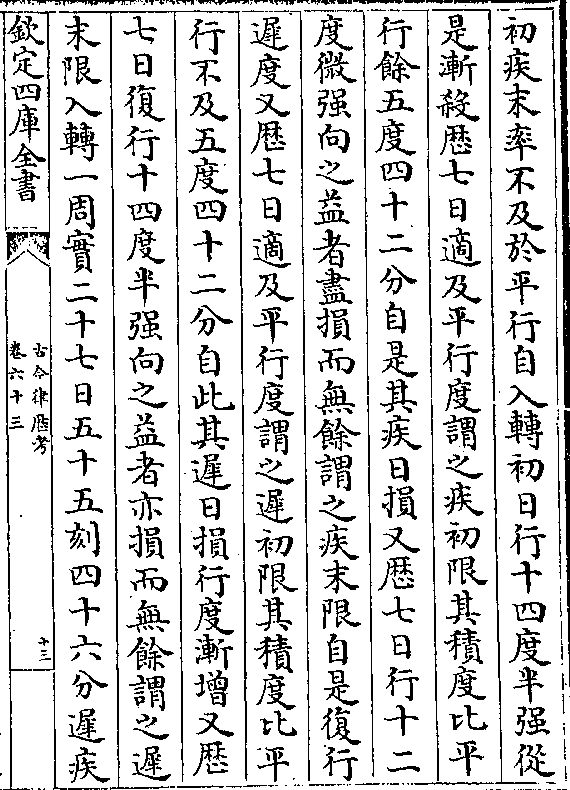 初疾末率不及於平行自入轉初日行十四度半强從
是漸殺歷七日適及平行度謂之疾初限其積度比平
行餘五度四十二分自是其疾日損又歷七日行十二
度微强向之益者盡損而無餘謂之疾末限自是復行
遲度又歷七日適及平行度謂之遲初限其積度比平
行不及五度四十二分自此其遲日損行度漸增又歷
七日復行十四度半强向之益者亦損而無餘謂之遲
末限入轉一周實二十七日五十五刻四十六分遲疾
欽定四庫全書
古今律歷考
卷六十三
十三